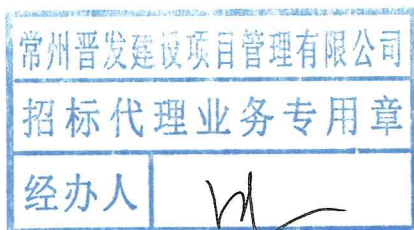 常州晋发建设项目管理有限公司
招标代理业务专用章
经办人